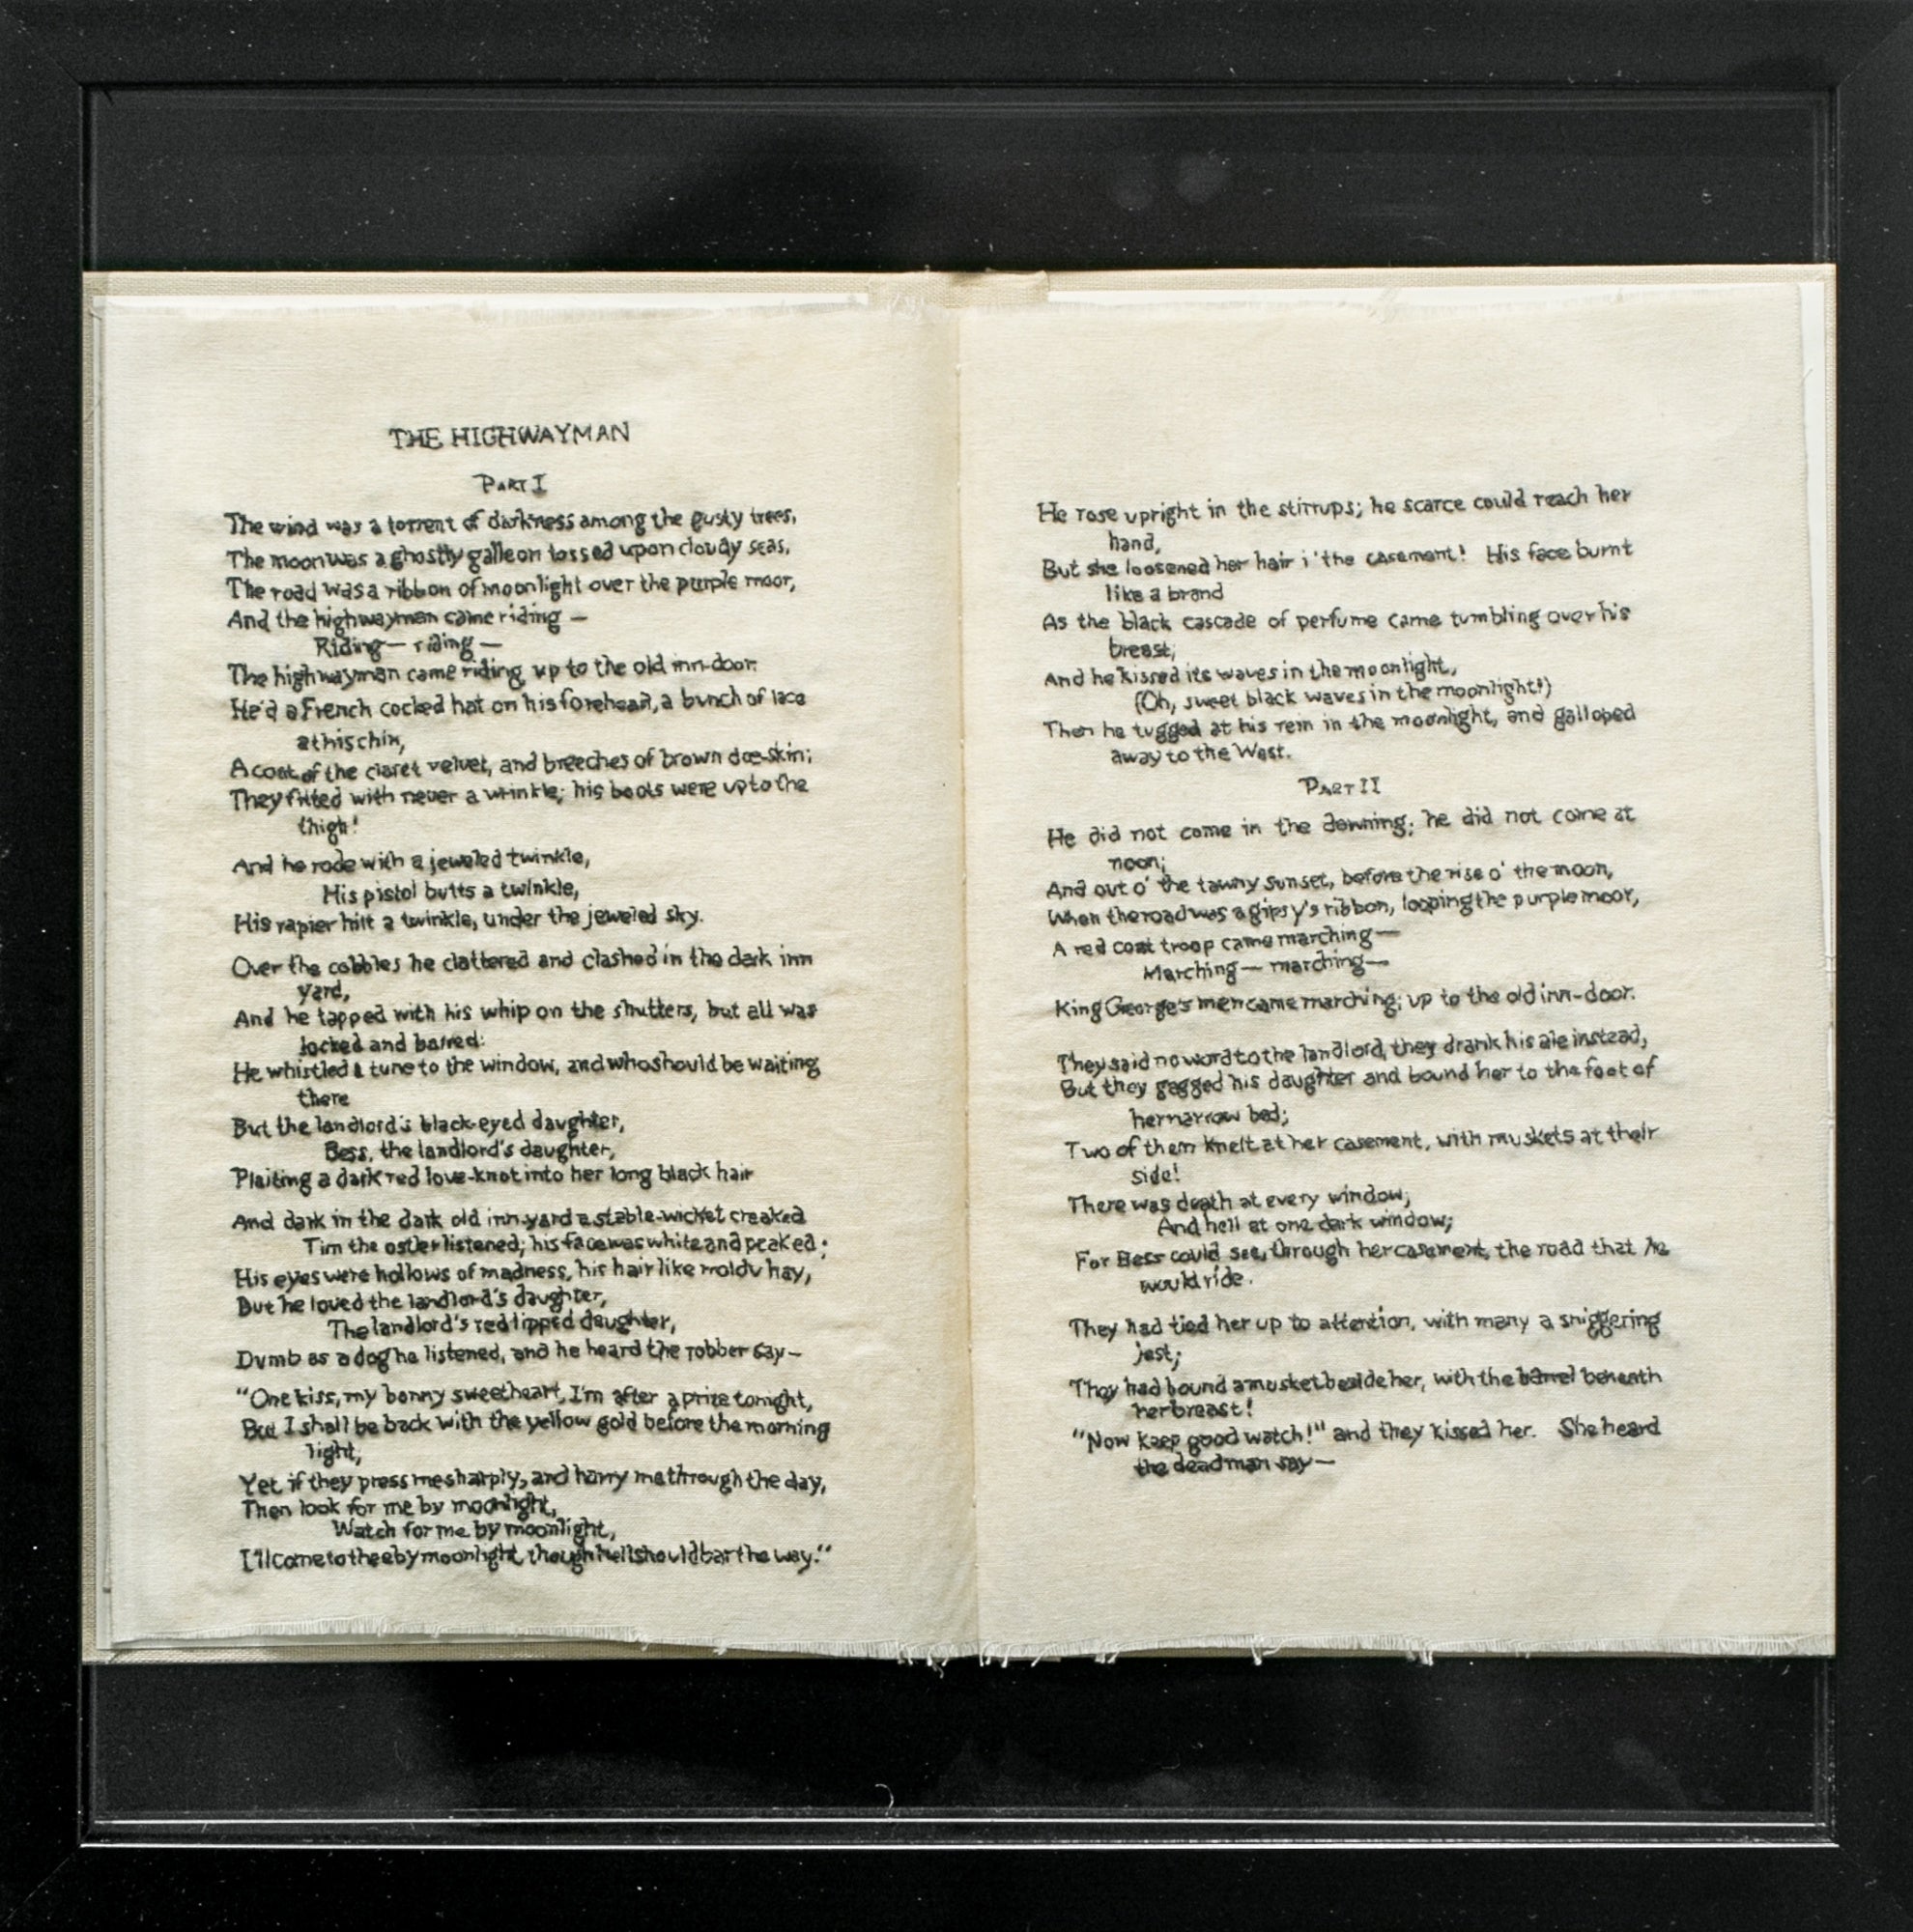 THE HIGHWAYMAN
PART I
The wind was a torrent of darkness among the gusty trees,
The moon was a ghostly galleon tossed upon cloudy seas,
The road was a ribbon of moonlight over the purple moor,
And the highwayman came riding —
Riding — riding —
The highwayman came riding, up to the old inn-door.
He'd a French cocked hat on his forehead, a bunch of lace
at his chin,
A coat of the claret velvet, and breeches of brown doe-skin;
They fitted with never a wrinkle; his boots were up to the
thigh!
And he rode with a jeweled twinkle,
His pistol butts a twinkle,
His rapier hilt a twinkle, under the jeweled sky.
Over the cobbles he clattered and clashed in the dark inn
yard,
And he tapped with his whip on the shutters, but all was
locked and barred:
He whistled a tune to the window, and who should be waiting
there
But the landlord's black-eyed daughter,
Bess, the landlord's daughter,
Plaiting a dark red love-knot into her long black hair
And dark in the dark old inn-yard a stable-wicket creaked
Tim the ostler listened; his face was white and peaked;
His eyes were hollows of madness, his hair like moldy hay,
But he loved the landlord's daughter,
The landlord's red lipped daughter,
Dumb as a dog he listened, and he heard the robber say —
"One kiss, my bonny sweetheart, I'm after a prize tonight,
But I shall be back with the yellow gold before the morning
light,
Yet if they press me sharply, and harry me through the day,
Then look for me by moonlight,
Watch for me by moonlight,
I'll come to thee by moonlight, though hell should bar the way."
He rose upright in the stirrups; he scarce could reach her
hand,
But she loosened her hair i' the casement! His face burnt
like a brand
As the black cascade of perfume came tumbling over his
breast;
And he kissed its waves in the moonlight,
(Oh, sweet black waves in the moonlight!)
Then he tugged at his rein in the moonlight, and galloped
away to the West.
PART II
He did not come in the dawning; he did not come at
noon;
And out o' the tawny sunset, before the rise o' the moon,
When the road was a gipsy's ribbon, looping the purple moor,
A red coat troop came marching —
Marching — marching —
King George's men came marching; up to the old inn-door.
They said no word to the landlord, they drank his ale instead,
But they gagged his daughter and bound her to the foot of
her narrow bed;
Two of them knelt at her casement, with muskets at their
side!
There was death at every window;
And hell at one dark window;
For Bess could see, through her casement, the road that he
would ride.
They had tied her up to attention, with many a sniggering
jest;
They had bound a musket beside her, with the barrel beneath
her breast!
"Now keep good watch!" and they kissed her. She heard
the dead man say —